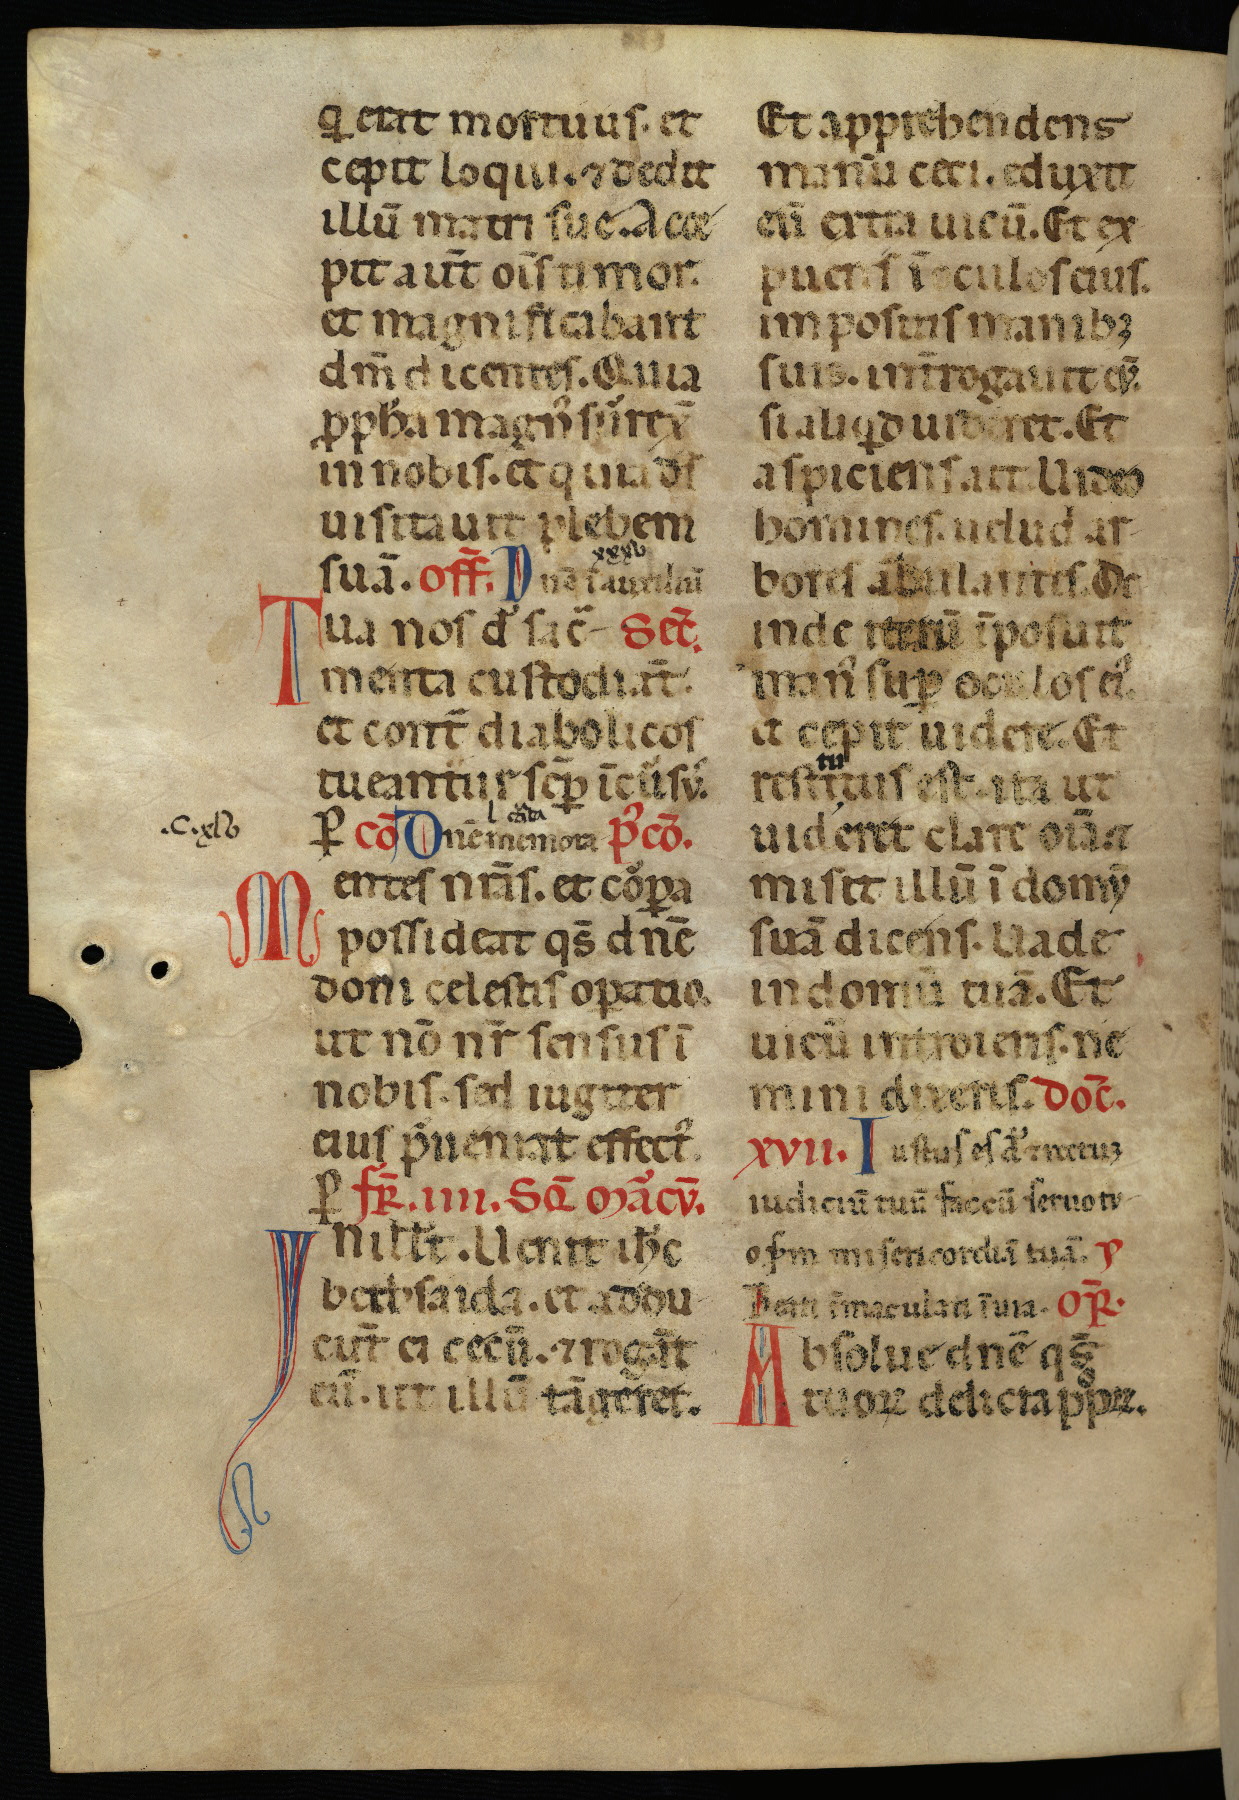 q̇ erat mortuus. et
cepit loqui. ⁊ dedit
illū matri sue. Acce
pit aut̄ oīs timor.
et magnificabant
dm̄ dicentes. Quia
ꝓph̄a magn᷒ surrex̄
in nobis. et quia ds̄
uisitauit plebem
suā. Off̄. Dnē ī auxiliū
xxxv
Tua nos d᷒ sac̄ Sec̄.
menta custodiāt.
et cont̄ diabolicos
tueantur sēp īcūsū.
ꝑ Cō Dnē memora P᷒cō.
.C. xlv
Mentes nr̄as. et cōꝑa
possideat qs̄ dnē
doni celestis oꝑatio.
ut nō nr̄ sensus ī
nobis. sed iugiter
eius p̄ueniat effect᷒.
ꝑ fr̄. IIII. Sc̄d Marcū.
In ill̄ t̄. Uenit ih̄c
bethsaida. et addu
cūt ei cecū. ⁊ rogāt
eū. ut illū tāgeret.
Et apprehendens
manū ceci. eduxit
eū extra uicū. Et ex
puens ī oculos eius.
impositis manibꝫ
suis. int̄rogauit eū.
si aliq̇d uideret. Et
aspiciens ait. Uideo
homines. uelud ar
bores ābulantes. De
inde iterū īposuit
man᷒ suꝑ oculos ei᷒.
et cepit uidere. Et
restitutus est. ita ut
uideret clare oīa. ⁊
misit illū ī domū
suā dicens. Uade
in domū tuā. Et
uicū introiens. ne
mini dixeris. Doc̄.
XVII. Iustus es d᷒ne ⁊ rectuꝫ
iudiciū tuū fac cū seruo tu
o scd̄m misericordiā tuā. P
Beati īmaculati ī uia. Or̄.
Absolue dnē qs̄
tuoꝝ delicta ppl̄oꝝ.